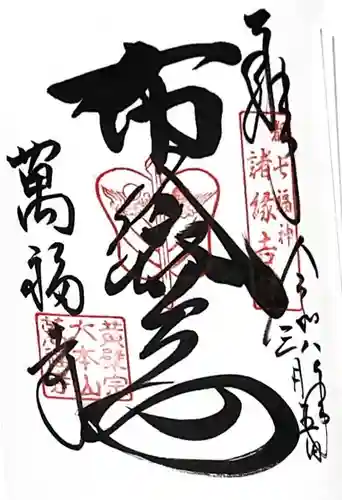 奉拝
令和八年
三月五日
都七福神
諸縁吉
布袋尊
萬福寺
黄檗宗
大本山
萬福寺